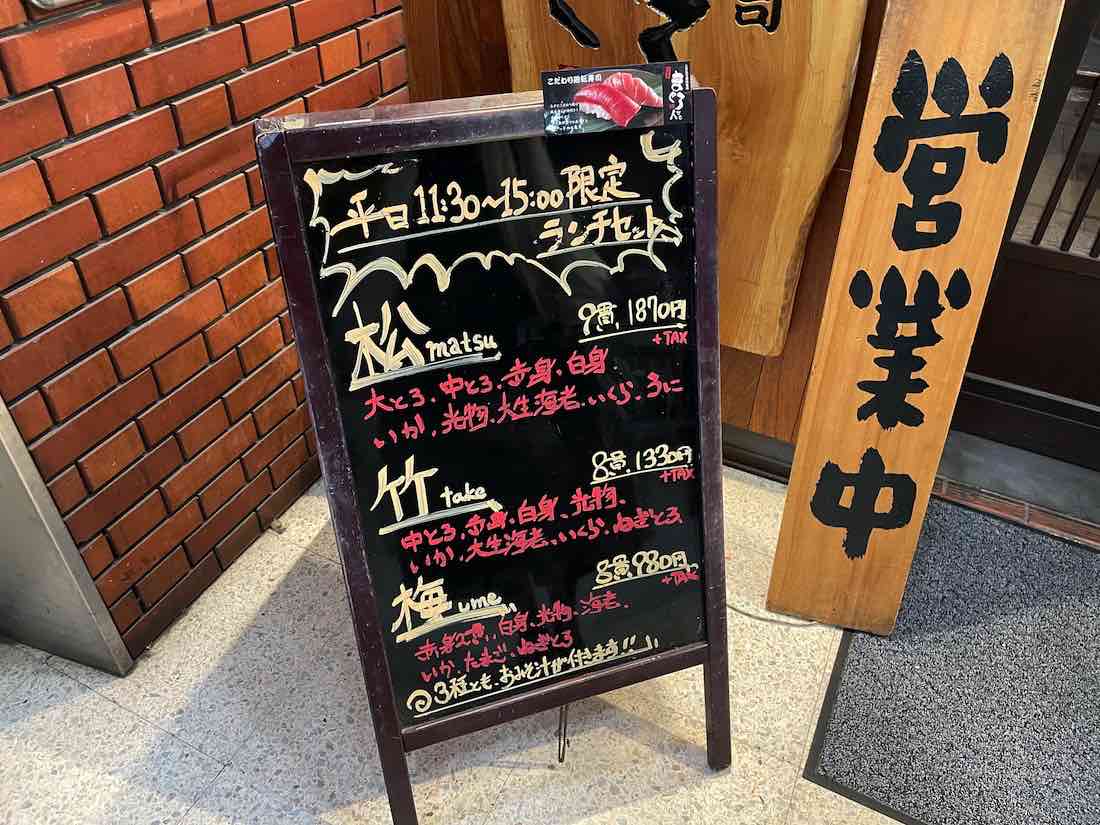 こだわり廻転寿司
まぐろ人
平日11:30〜15:00限定
ランチセット
松 matsu 9貫、1870円
+TAX
大とろ、中とろ、赤身、白身
いか、光物、大生海老、いくら、うに
竹 take 8貫、1330円
+TAX
中とろ、赤身、白身、光物、
いか、大生海老、いくら、ねぎとろ
梅 ume 8貫、980円
+TAX
赤身2貫、白身、光物、海老、
いか、たまご、ねぎとろ
◎3種とも、おみそ汁が付きます!!
司
営業中